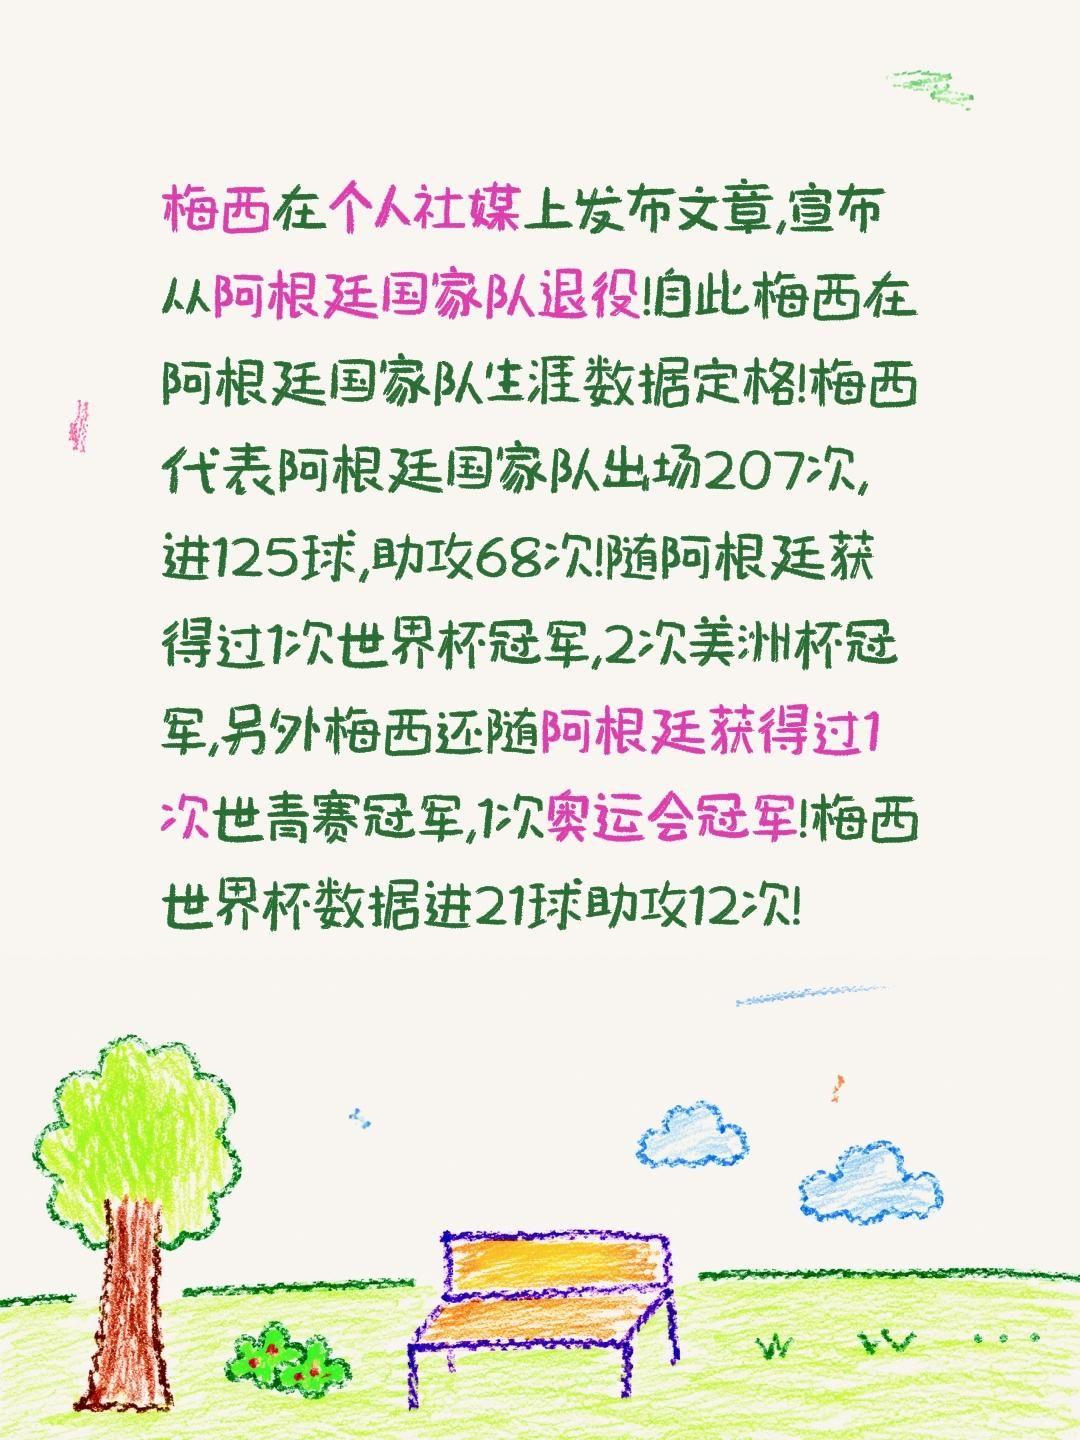 梅西在个人社媒上发布文章,宣布
从阿根廷国家队退役!自此梅西在
阿根廷国家队生涯数据定格!梅西
代表阿根廷国家队出场207次,
进125球,助攻68次!随阿根廷获
得过1次世界杯冠军,2次美洲杯冠
军,另外梅西还随阿根廷获得过1
次世青赛冠军,1次奥运会冠军!梅西
世界杯数据进21球助攻12次!